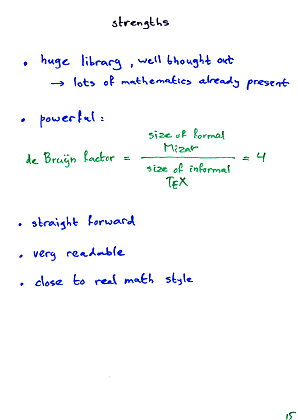 strengths
• huge library, well thought out
→ lots of mathematics already present
• powerful:
de Bruijn factor = size of formal Mizar / size of informal TEX = 4
• straight forward
• very readable
• close to real math style
15